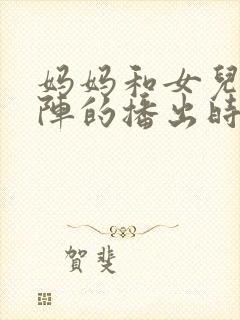 妈妈和女兒
陣的播出時
賀斐